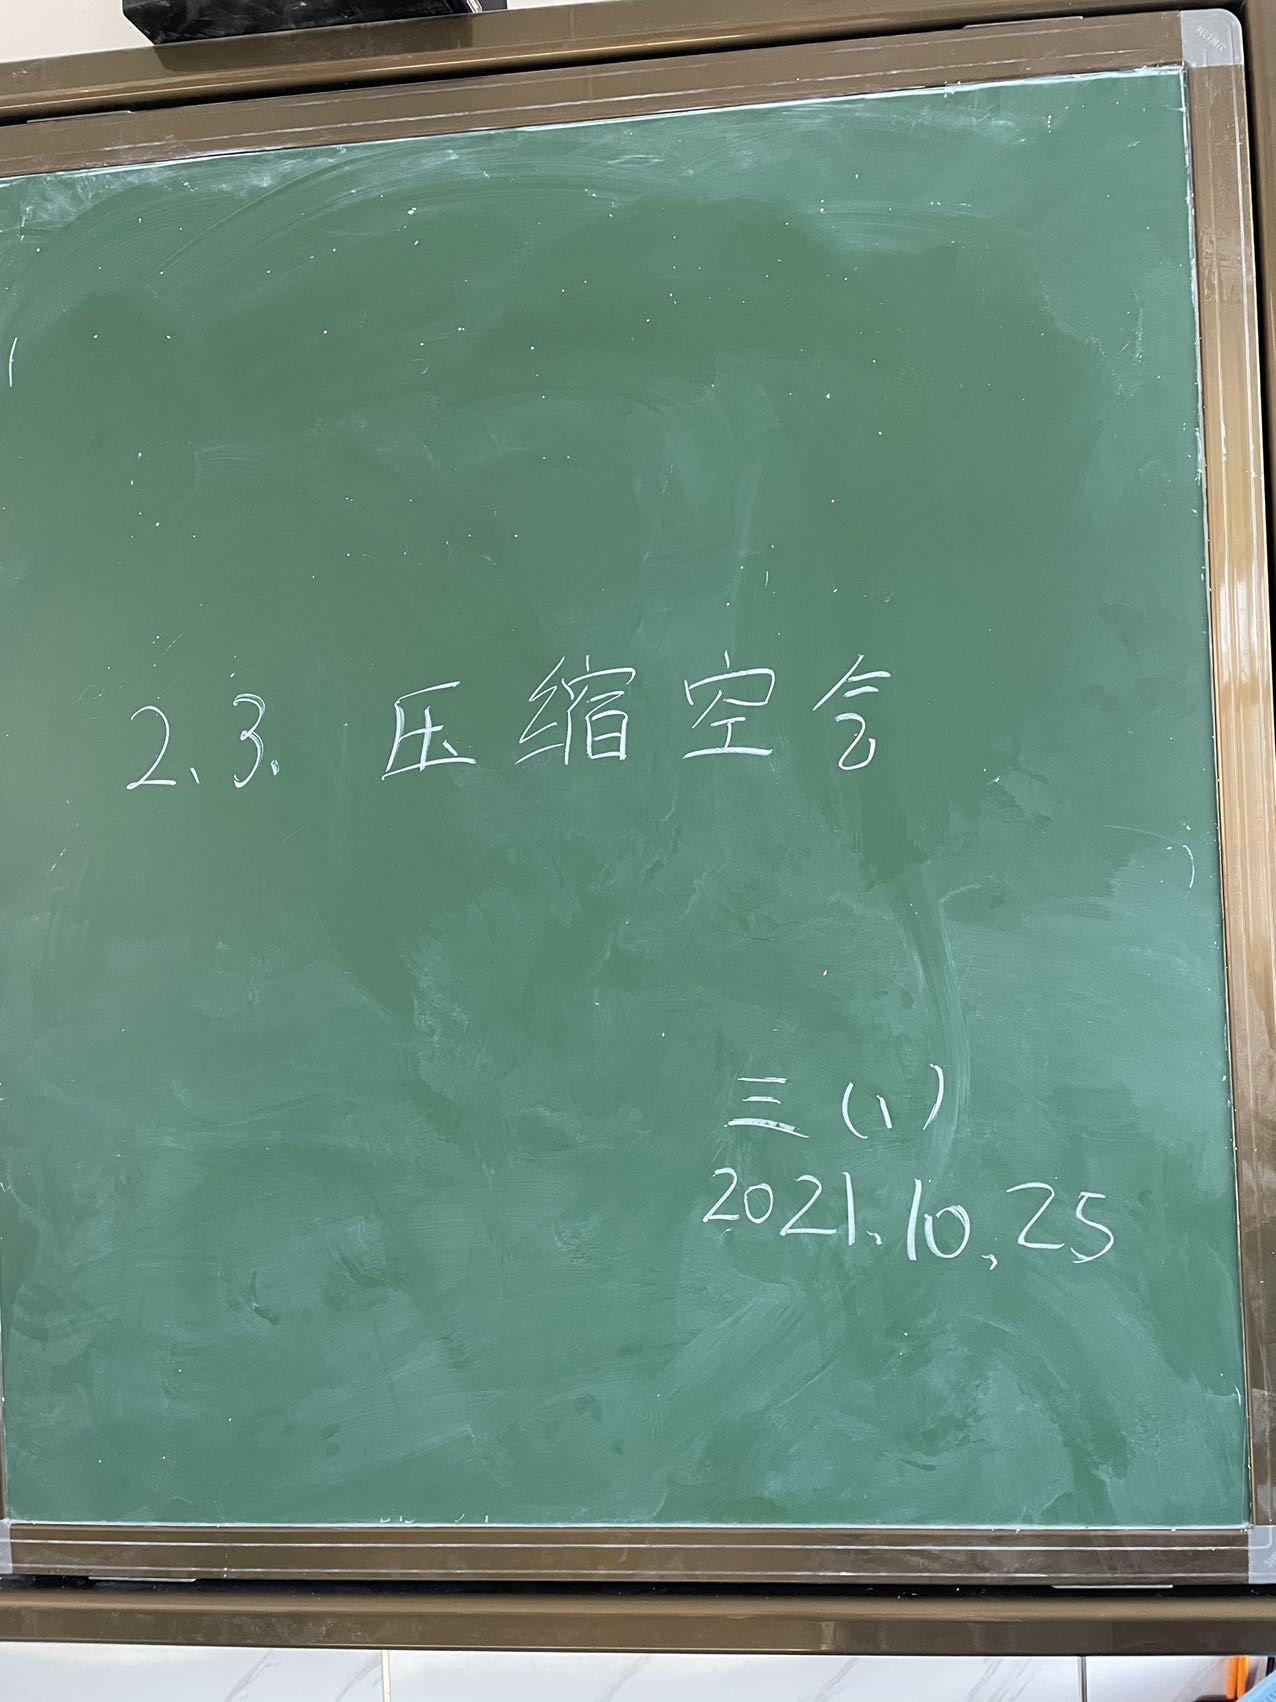 2.3. 压缩空气
三(1)
2021.10.25